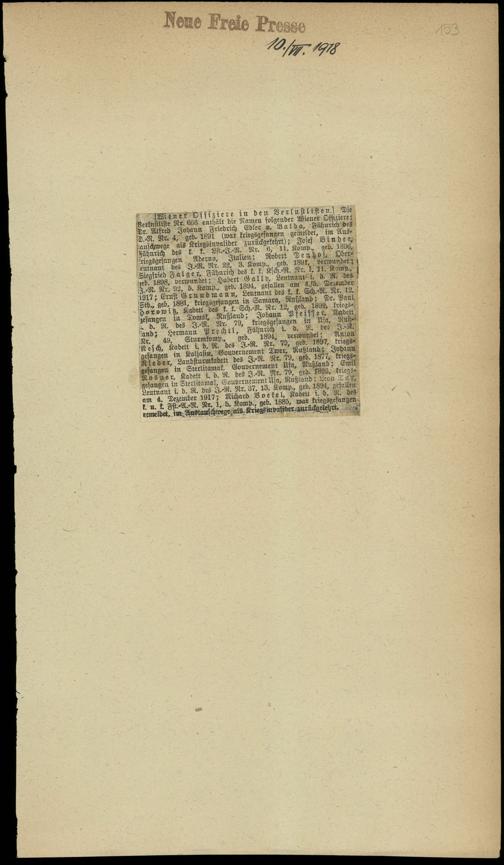 Neue Freie Presse
153
10./VII. 1918
[Wiener Offiziere in den Verlustlisten.] Die
Verlustliste Nr. 666 enthält die Namen folgender Wiener Offiziere:
Dr. Alfred Johann Friedrich Edler v. Fähnrich des
Nr. 4, geb. 1891 (war kriegsgefangen gemeldet, im Aus-
tauschwege als Kriegsinvalider zurückgekehrt); Josef Binder,
Fähnrich des k. k. Nr. 6, 11. Komp., geb. 1896,
kriegsgefangen Italien; Robert Ober-
leutnant des J.-R. Nr. 22, 3. Komp., geb. verwundet;
Siegfried Fähnrich des k. k. Nr. 1, 11. Komp.,
geb. 1898, verwundet; Hubert Gally, Leutnant i. d. R. des
J.-R. Nr. 5. Komp., geb. 1894, gefallen am Dezember
1917; Ernst Leutnant des k. k. Sch.-R. Nr. 12,
geb. kriegsgefangen in Samara, Rußland; Dr. Paul
Horowitz, Kadett des k. k. Sch.-R. Nr. 12, geb. kriegs-
gefangen in Rußland; Johann Pfeiffer, Kadett
i. d. R. des J.-R. Nr. 79, kriegsgefangen in Ruß-
land; Hermann Fähnrich i. d. R. des J.-R.
Nr. 49, geb. 1894, verwundet; Anton
Kadett i. d. R. des J.-R. Nr. geb. 1897, kriegs-
gefangen in Gouvernement Twer, Rußland; Johann
Landsturmkadett des J.-R. Nr. 79, geb. 1877, kriegs-
gefangen in Sterlitamak, Gouvernement Ufa, Rußland; Emil
Kadett i. d. R. des J.-R. Nr. 79, geb. kriegs-
gefangen in Sterlitamak, Gouvernement Ufa, Rußland;
Leutnant i. d. R. des J.-R. Nr. 57, 15. Komp., geb. 1894, gefallen
am 4. Dezember 1917; Richard Kadett i. d. R. des
k. u. k. Nr. 1, geb. 1885, war kriegsgefangen
gemeldet, im Austauschwege als Kriegsinvalider zurückgekehrt.